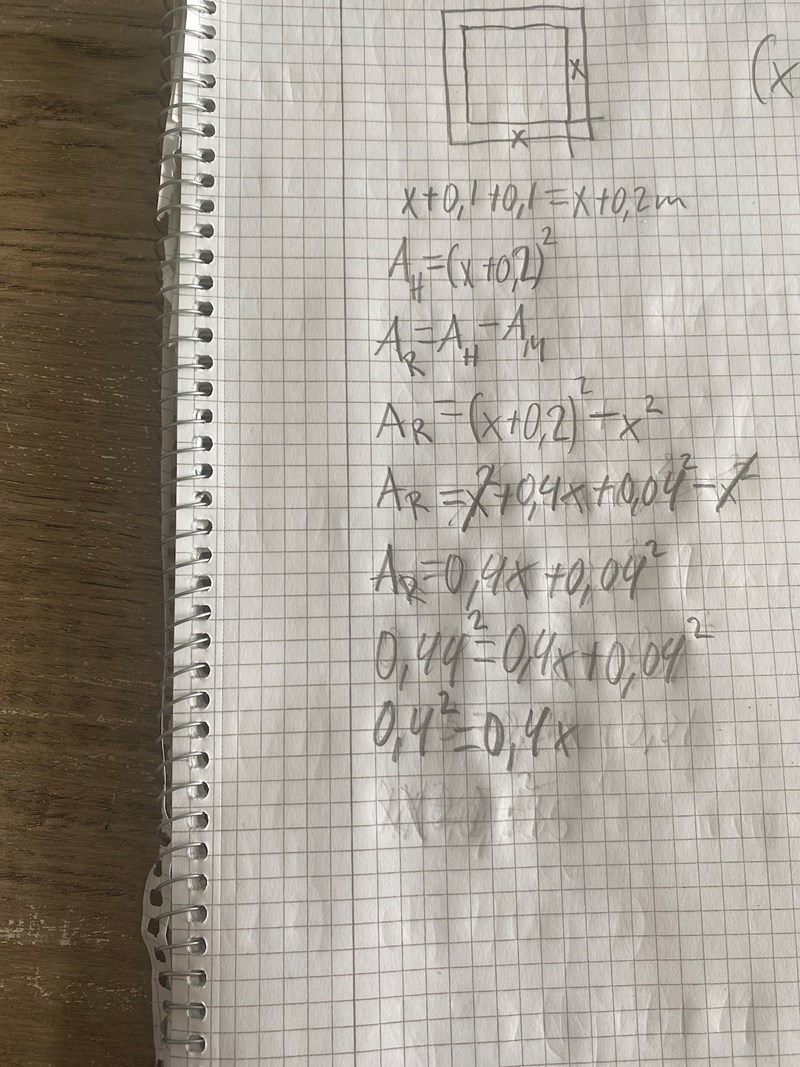 (x
x
x
x+0,1+0,1=x+0,2m
A_H=(x+0,2)²
A_R=A_H-A_M
A_R=(x+0,2)²-x²
A_R=x²+0,4x+0,04²-x²
A_R=0,4x+0,04²
0,44²=0,4x+0,04²
0,4²=0,4x